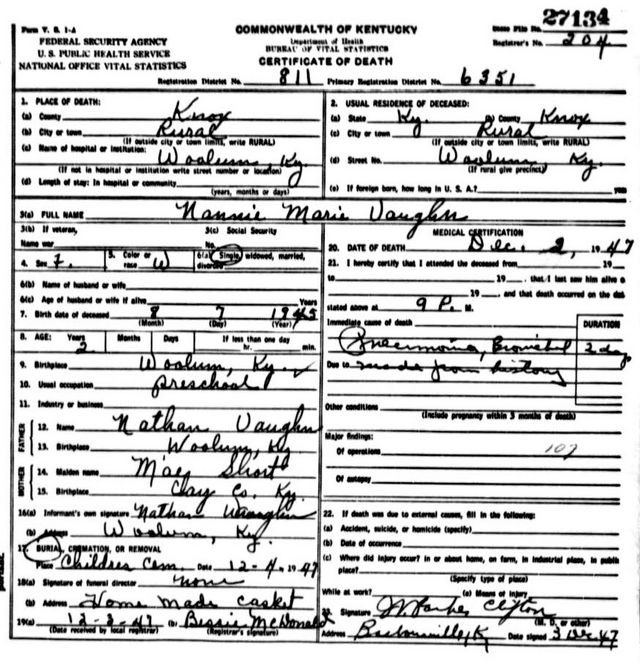 27134
Form V. S. 1-A
COMMONWEALTH OF KENTUCKY
FEDERAL SECURITY AGENCY
Department of Health
Registrar's No. 204
U. S. PUBLIC HEALTH SERVICE
BUREAU OF VITAL STATISTICS
NATIONAL OFFICE VITAL STATISTICS
CERTIFICATE OF DEATH
Registration District No. 811 Primary Registration District No. 6351
1. PLACE OF DEATH:
(a) County Knox
(b) City or town Rural
(If outside city or town limits, write RURAL)
(c) Name of hospital or institution: Woolum, Ky.
(If not in hospital or institution write street number or location)
(d) Length of stay: In hospital or community
(years, months or days)
2. USUAL RESIDENCE OF DECEASED:
(a) State Ky. (b) County Knox
(c) City or town Rural
(If outside city or town limits, write RURAL)
(d) Street No. Woolum, Ky.
(If rural give precinct)
(e) If foreign born, how long in U. S. A.?
3(a) FULL NAME Nannie Marie Vaughn
3(b) If veteran,
Name war
3(c) Social Security
No.
4. Sex F. 5. Color or race W 6(a) Single, widowed, married, divorced
6(b) Name of husband or wife
6(c) Age of husband or wife if alive Years
7. Birth date of deceased 8 7 1945
(Month) (Day) (Year)
8. AGE: Years 2 Months Days If less than one day hr. min.
9. Birthplace Woolum, Ky.
10. Usual occupation preschool
11. Industry or business
FATHER
12. Name Nathan Vaughn
13. Birthplace Woolum, Ky
MOTHER
14. Maiden name Mae Short
15. Birthplace Clay Co. Ky.
16(a) Informant's own signature Nathan Vaughn
(b) Address Woolum, Ky.
17. BURIAL, CREMATION, OR REMOVAL
Place Childres Cem. Date 12-4, 1947
18(a) Signature of funeral director none
(b) Address Home made casket
19(a) 12-3-47 (b) Bessie McDonald
(Date received by local registrar) (Registrar's signature)
MEDICAL CERTIFICATION
20. DATE OF DEATH Dec. 2, 1947
21. I hereby certify that I attended the deceased from 19
to 19 , that I last saw him alive o
19 , and that death occurred on the dat
stated above at 9 P. M.
Immediate cause of death DURATION
Pneumonia, Bronchial 2 days
Due to made from history
Other conditions
(Include pregnancy within 3 months of death)
Major findings:
Of operations 107
Of autopsy
22. If death was due to external causes, fill in the following:
(a) Accident, suicide, or homicide (specify)
(b) Date of occurrence
(c) Where did injury occur? in or about home, on farm, in industrial place, in public
place?
(Specify type of place)
While at work? (e) Means of injury
23. Signature Parker Clifton
(M. D. or other)
Address Barbourville, Ky Date signed 3 Dec 47